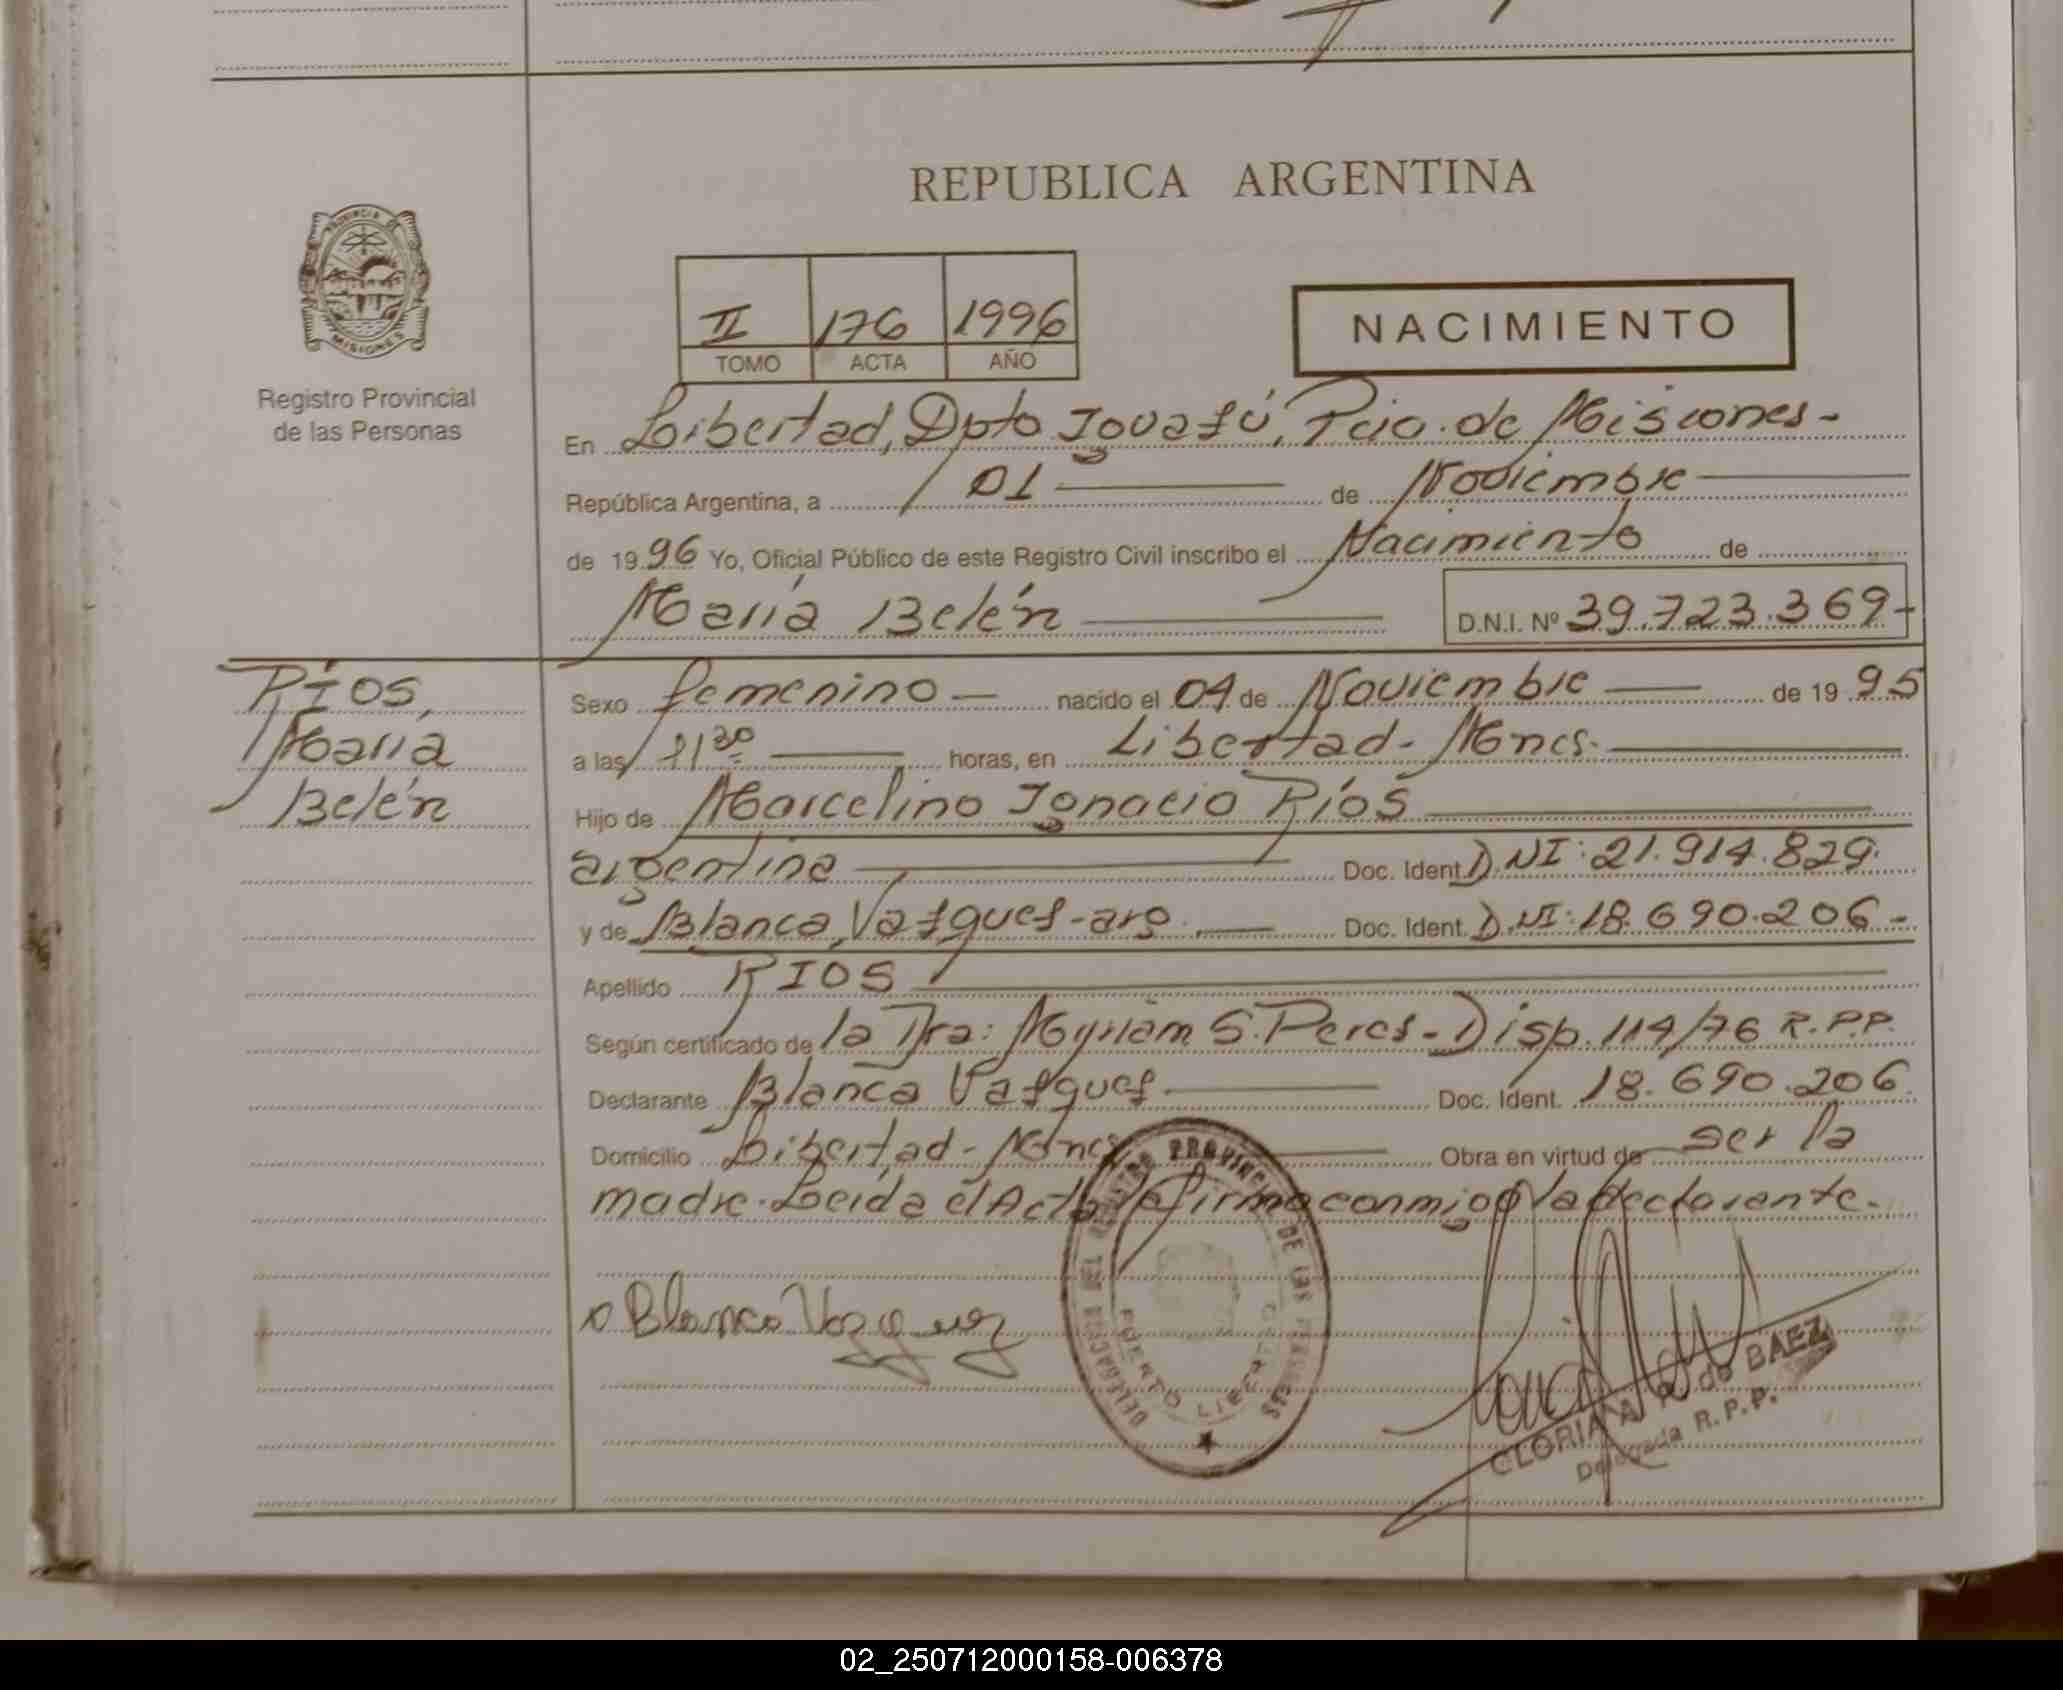 REPUBLICA ARGENTINA
PROVINCIA DE
MISIONES
Registro Provincial
de las Personas
II 176 1996
TOMO ACTA AÑO
NACIMIENTO
En Libertad, Dpto Iguazú, Pcia. de Misiones-
República Argentina, a 01 de Noviembre
de 1996 Yo, Oficial Público de este Registro Civil inscribo el Nacimiento de
María Belén D.N.I. Nº 39.723.369-
Ríos,
María
Belén
Sexo femenino nacido el 04 de Noviembre de 1995
a las 11 30 horas, en Libertad- Mnes.
Hijo de Marcelino Ignacio Ríos
argentina Doc. Ident. D.NI: 21.914.829.
y de Blanca Vazquez-arg. Doc. Ident. D.NI: 18.690.206-
Apellido RIOS
Según certificado de la Dra: Myriam S. Perez- Disp. 114/76 R.P.P.
Declarante Blanca Vazquez Doc. Ident. 18.690.206.
Domicilio Libertad- Mnes Obra en virtud de ser la
madre. Leída el Acta firma conmigo la declarante.
DELEGACION DEL REGISTRO PROVINCIAL DE LAS PERSONAS
PUERTO LIBERTAD
Blanca Vazquez
GLORIA A. de BAEZ
Delegada R.P.P.
02_250712000158-006378